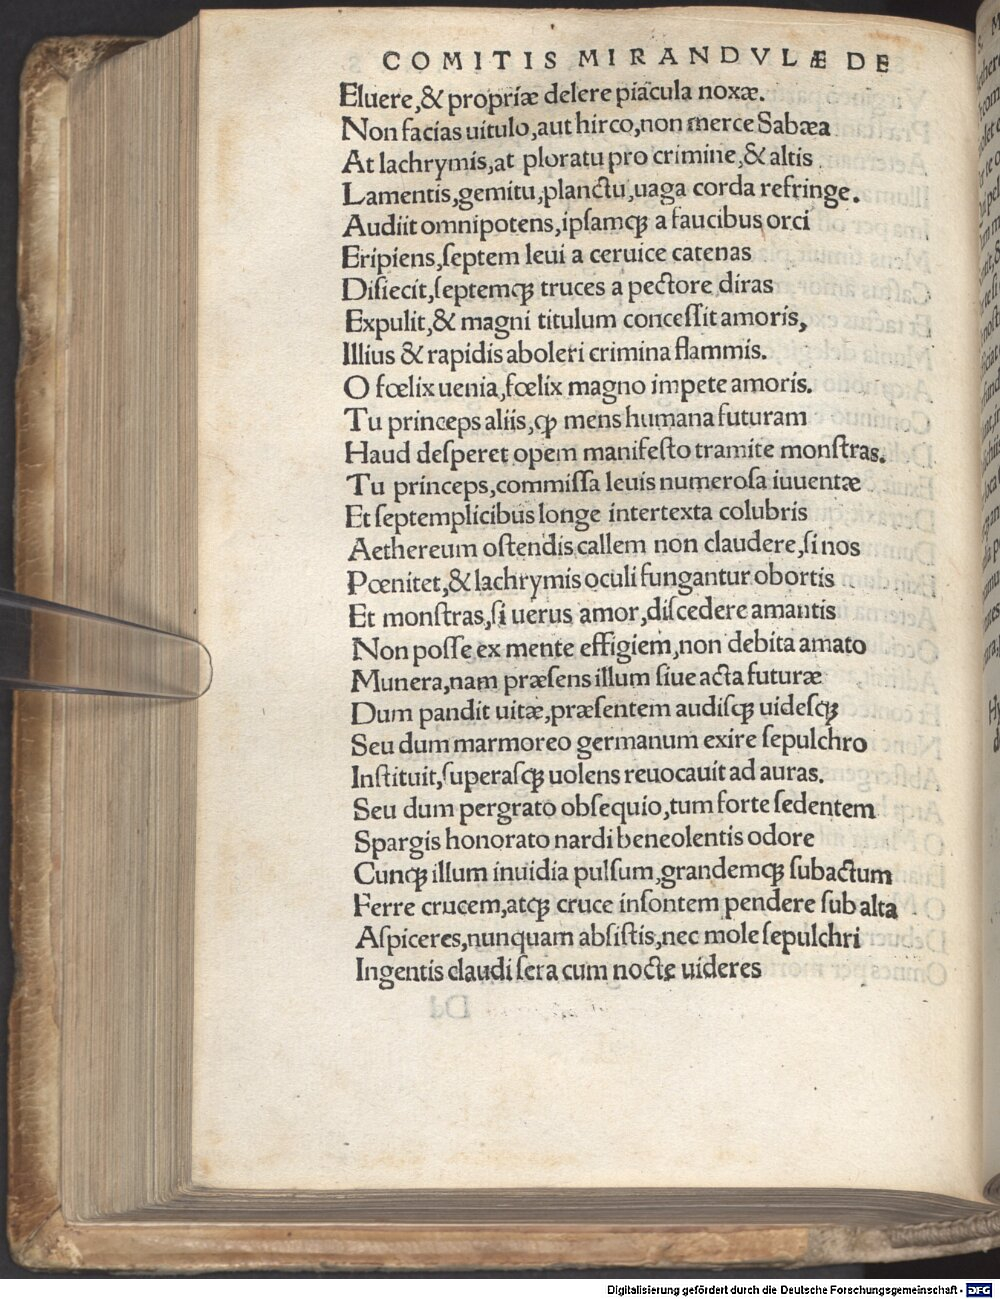 COMITIS MIRANDVLÆ DE
Eluere,& propriæ delere piacula noxæ.
Non facias uitulo,aut hirco,non merce Sabæa
At lachrymis,at ploratu pro crimine,& altis
Lamentis,gemitu,planctu,uaga corda refringe.
Audiit omnipotens,ipſamqꝫ a faucibus orci
Eripiens,ſeptem leui a ceruice catenas
Diſiecit,ſeptemqꝫ truces a pectore diras
Expulit,& magni titulum conceſſit amoris,
Illius & rapidis aboleri crimina flammis.
O fœlix uenia,fœlix magno impete amoris.
Tu princeps aliis,ꝙ mens humana futuram
Haud deſperet opem manifeſto tramite monſtras.
Tu princeps,commiſſa leuis numeroſa iuuentæ
Et ſeptemplicibus longe intertexta colubris
Aethereum oſtendis callem non claudere,ſi nos
Pœnitet,& lachrymis oculi fungantur obortis
Et monſtras,ſi uerus amor,diſcedere amantis
Non poſſe ex mente effigiem,non debita amato
Munera,nam præſens illum ſiue acta futuræ
Dum pandit uitæ,præſentem audiſqꝫ uideſqꝫ
Seu dum marmoreo germanum exire ſepulchro
Inſtituit,ſuperaſqꝫ uolens reuocauit ad auras.
Seu dum pergrato obſequio,tum forte ſedentem
Spargis honorato nardi beneolentis odore
Cunqꝫ illum inuidia pulſum,grandemqꝫ ſubactum
Ferre crucem,atqꝫ cruce inſontem pendere ſub alta
Aſpiceres,nunquam abſiſtis,nec mole ſepulchri
Ingentis claudi ſera cum nocte uideres
Digitalisierung gefördert durch die Deutsche Forschungsgemeinschaft - DFG